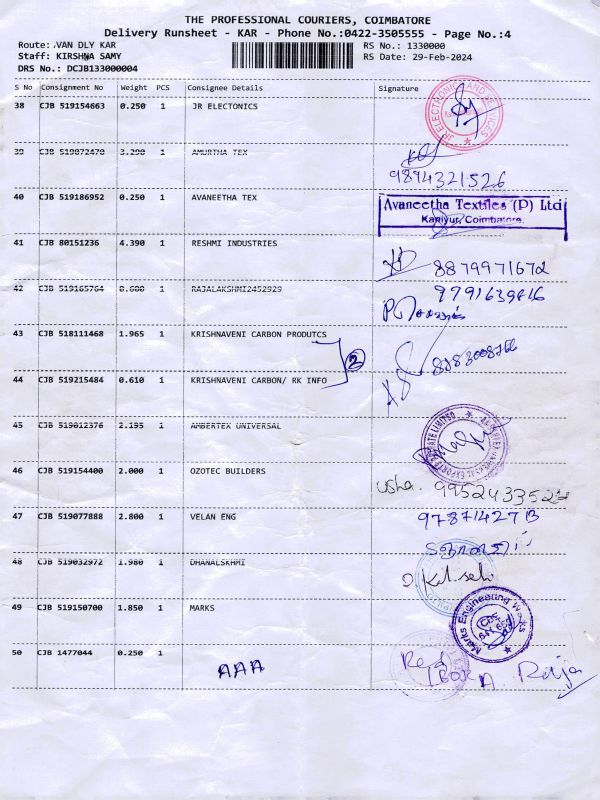 THE PROFESSIONAL COURIERS, COIMBATORE
Delivery Runsheet - KAR - Phone No.:0422-3505555 - Page No.:4
Route: VAN DLY KAR RS No.: 1330000
Staff: KIRSHNA SAMY RS Date: 29-Feb-2024
DRS No.: DCJB133000004
S No Consignment No Weight PCS Consignee Details Signature
38 CJB 519154663 0.250 1 JR ELECTONICS
39 CJB 519072470 3.290 1 AMURTHA TEX
9894321526
40 CJB 519186952 0.250 1 AVANEETHA TEX Avaneetha Textiles (P) Ltd
Kaniyur, Coimbatore.
41 CJB 80151236 4.390 1 RESHMI INDUSTRIES
8879971672
42 CJB 519165764 0.600 1 RAJALAKSHMI2452929
43 CJB 518111468 1.965 1 KRISHNAVENI CARBON PRODUTCS
2
44 CJB 519215484 0.610 1 KRISHNAVENI CARBON/ RK INFO
45 CJB 519012376 2.195 1 AMBERTEX UNIVERSAL
46 CJB 519154400 2.000 1 OZOTEC BUILDERS
Usha.
47 CJB 519077888 2.800 1 VELAN ENG
48 CJB 519032972 1.980 1 DHANALSKHMI
49 CJB 519150700 1.850 1 MARKS Marks Engineering Works
50 CJB 1477044 0.250 1
AAA Raja